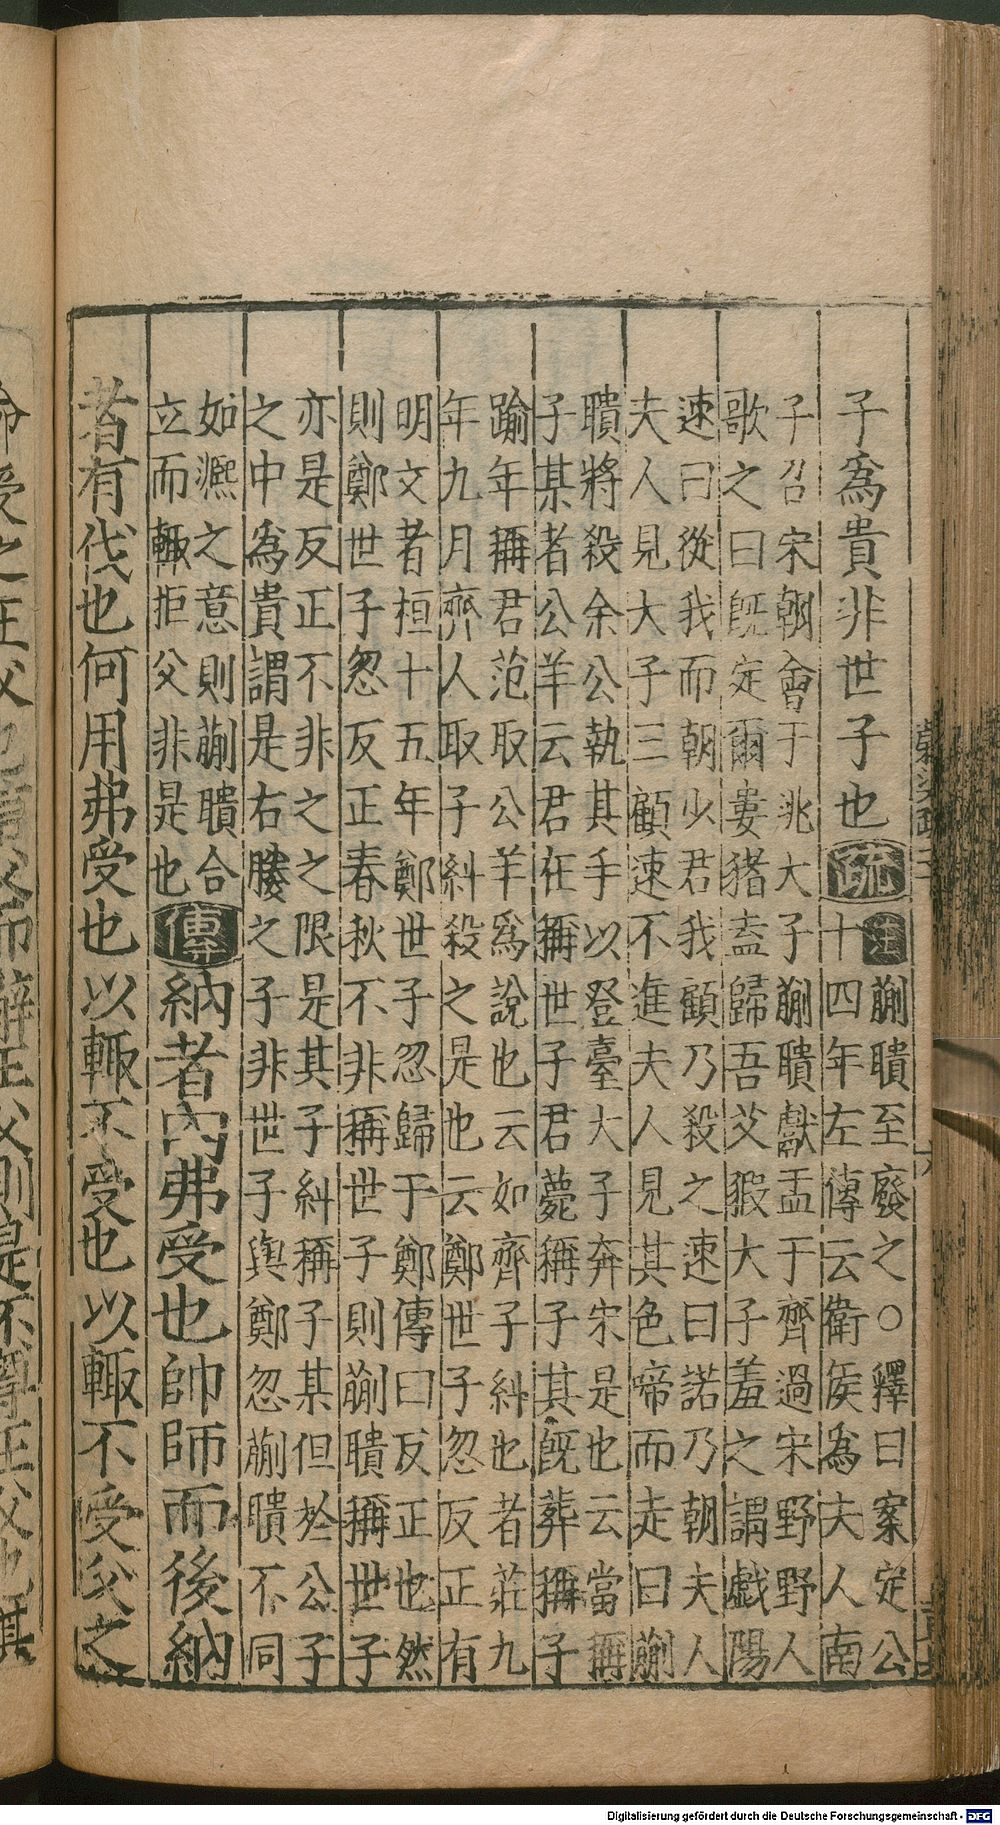 子爲貴非世子也疏注蒯聵至廢之○釋曰案定公
十四年左傳云衛侯爲夫人南
子召宋朝會于洮大子蒯聵獻盂于齊過宋野野人
歌之曰旣定爾婁猪盍歸吾艾豭大子羞之謂戲陽
速曰從我而朝少君我顧乃殺之速曰諾乃朝夫人
夫人見大子三顧速不進夫人見其色啼而走曰蒯
聵將殺余公執其手以登臺大子奔宋是也云當稱
子某者公羊云君在稱世子君薨稱子某旣葬稱子
踰年稱君范取公羊爲說也云如齊子糾也者莊九
年九月齊人取子糾殺之是也云鄭世子忽反正有
明文者桓十五年鄭世子忽歸于鄭傳曰反正也然
則鄭世子忽反正春秋不非稱世子則蒯聵稱世子
亦是反正不非之之限是其子糾稱子某但於公子
之中爲貴謂是右媵之子非世子與鄭忽蒯聵不同
如熙之意則蒯聵合
立而輒拒父非是也傳納者內弗受也帥師而後納
者有伐也何用弗受也以輒不受也以輒不受父之
Digitalisierung gefördert durch die Deutsche Forschungsgemeinschaft - DFG